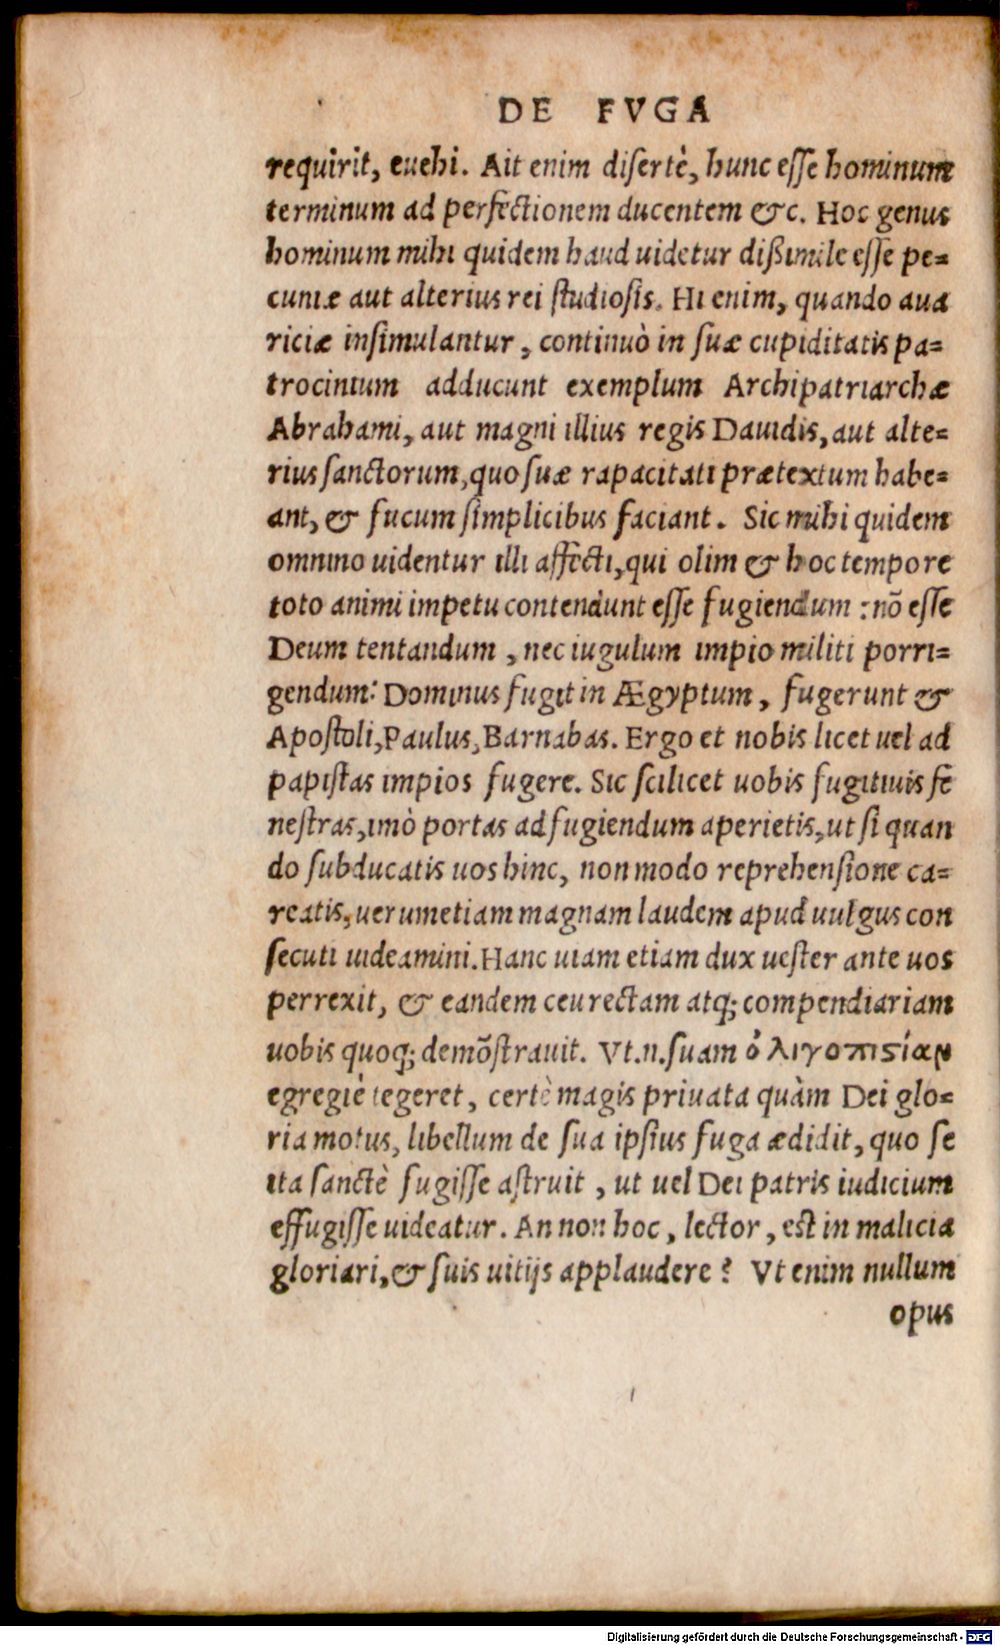 DE FVGA
requirit, euehi. Ait enim disertè, hunc esse hominum
terminum ad perfectionem ducentem &c. Hoc genus
hominum mihi quidem haud uidetur dißimile esse pe=
cuniæ aut alterius rei studiosis. Hi enim, quando aua
riciæ insimulantur, continuò in suæ cupiditatis pa=
trocinium adducunt exemplum Archipatriarchæ
Abrahami, aut magni illius regis Dauidis, aut alte=
rius sanctorum, quo suæ rapacitati prætextum habe=
ant, & fucum simplicibus faciant. Sic mihi quidem
omnino uidentur illi affecti, qui olim & hoc tempore
toto animi impetu contendunt esse fugiendum : nõ esse
Deum tentandum, nec iugulum impio militi porri=
gendum: Dominus fugit in Ægyptum, fugerunt &
Apostoli, Paulus, Barnabas. Ergo et nobis licet uel ad
papistas impios fugere. Sic scilicet uobis fugitiuis fe
nestras, imò portas ad fugiendum aperietis, ut si quan
do subducatis uos hinc, non modo reprehensione ca=
reatis, uerumetiam magnam laudem apud uulgus con
secuti uideamini. Hanc uiam etiam dux uester ante uos
perrexit, & eandem ceu rectam atq; compendiariam
uobis quoq; demõstrauit. Vt.n.suam ὀλιγοπιςίαν
egregiè tegeret, certè magis priuata quàm Dei glo=
ria motus, libellum de sua ipsius fuga ædidit, quo se
ita sanctè fugisse astruit, ut uel Dei patris iudicium
effugisse uideatur. An non hoc, lector, est in malicia
gloriari, & suis uitijs applaudere? Vt enim nullum
opus
Digitalisierung gefördert durch die Deutsche Forschungsgemeinschaft - DFG